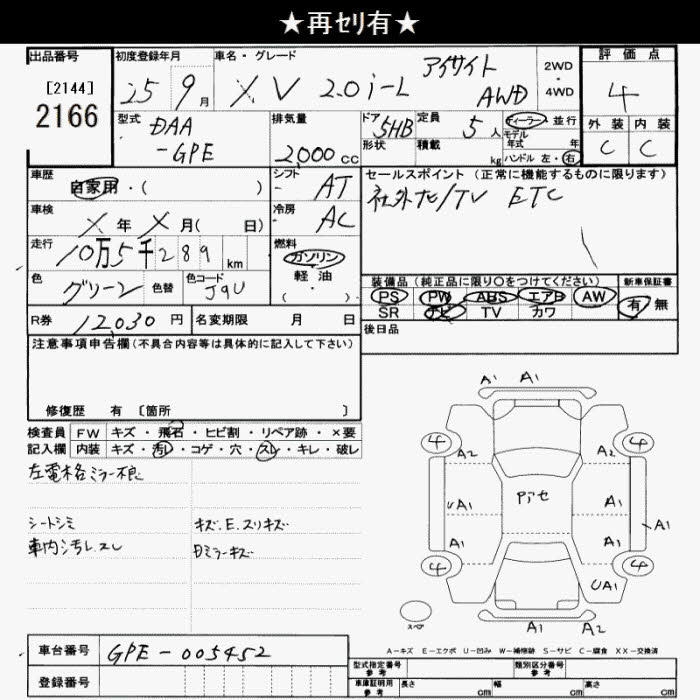 ★再セリ有★
出品番号 初度登録年月 車名・グレード 評価点
[2144] 25 9月 XV 2.0i-L アイサイト AWD 2WD・4WD 4
2166 型式 DAA-GPE 排気量 2,000cc ドア 5HB 定員 5人 ディーラー・並行 外装 内装
形状 積載 kg モデル年式 年 ハンドル 左・右 C C
車歴 自家用・( ) シフト AT セールスポイント(正常に機能するものに限ります)
車検 X年 X月( 日) 冷房 AC 社外ナビ/TV ETC
走行 10万5千289km 燃料 ガソリン 軽油 ( )
色 グリーン 色替 色コード J9U 装備品(純正品に限り○をつけてください) 新車保証書
PS PW ABS エアB AW 有・無
R券 12,030円 名変期限 月 日 SR ナビ TV カワ
後日品
注意事項申告欄(不具合内容等は具体的に記入して下さい)
修復歴 有 〔箇所 〕
検査員 FW キズ・飛石・ヒビ割・リペア跡・×要
記入欄 内装 キズ・汚れ・コゲ・穴・スレ・キレ・破レ
左電格ミラー不良
シートシミ キズ、E、スリキズ
車内汚レ、スレ 日ミラーキズ
A1 A1
4 A2 A1 4
UA1 アセ A1 A1
A1 A1
4 UA1 4
スペア A1 A2
A－キズ E－エクボ U－凹み W－補修跡 S－サビ C－腐食 XX－交換済
車台番号 GPE-005452 型式指定番号 参考 類別区分番号 参考
登録番号 車庫証明用 参考 長さ cm 幅 cm 高さ cm